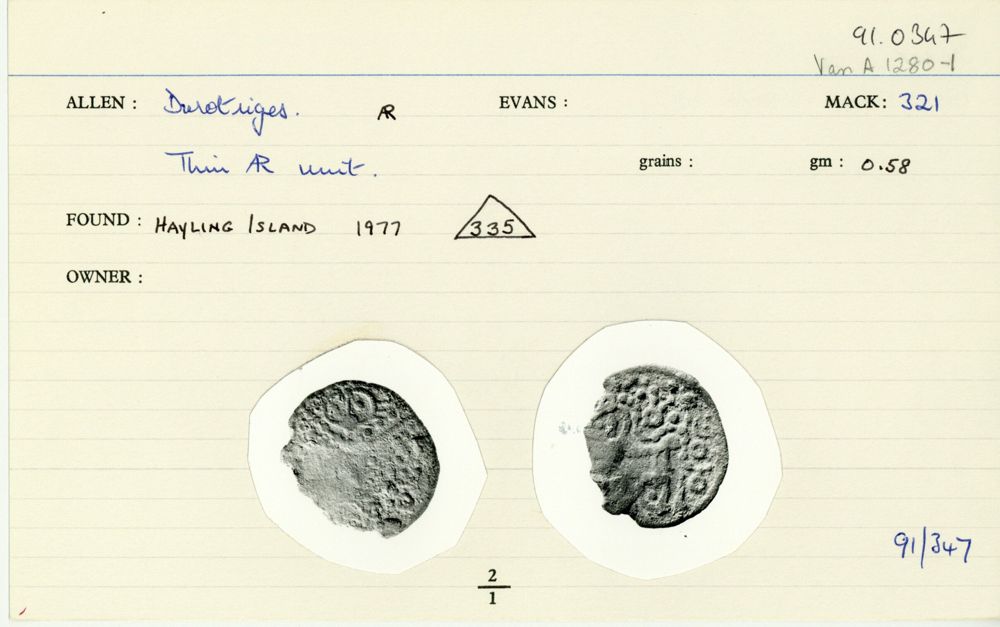 91.0347
Van A 1280-1
ALLEN : Durotriges. AR EVANS : MACK: 321
Thin AR unit. grains : gm : 0.58
FOUND : HAYLING ISLAND 1977 335
OWNER :
91/347
2
1